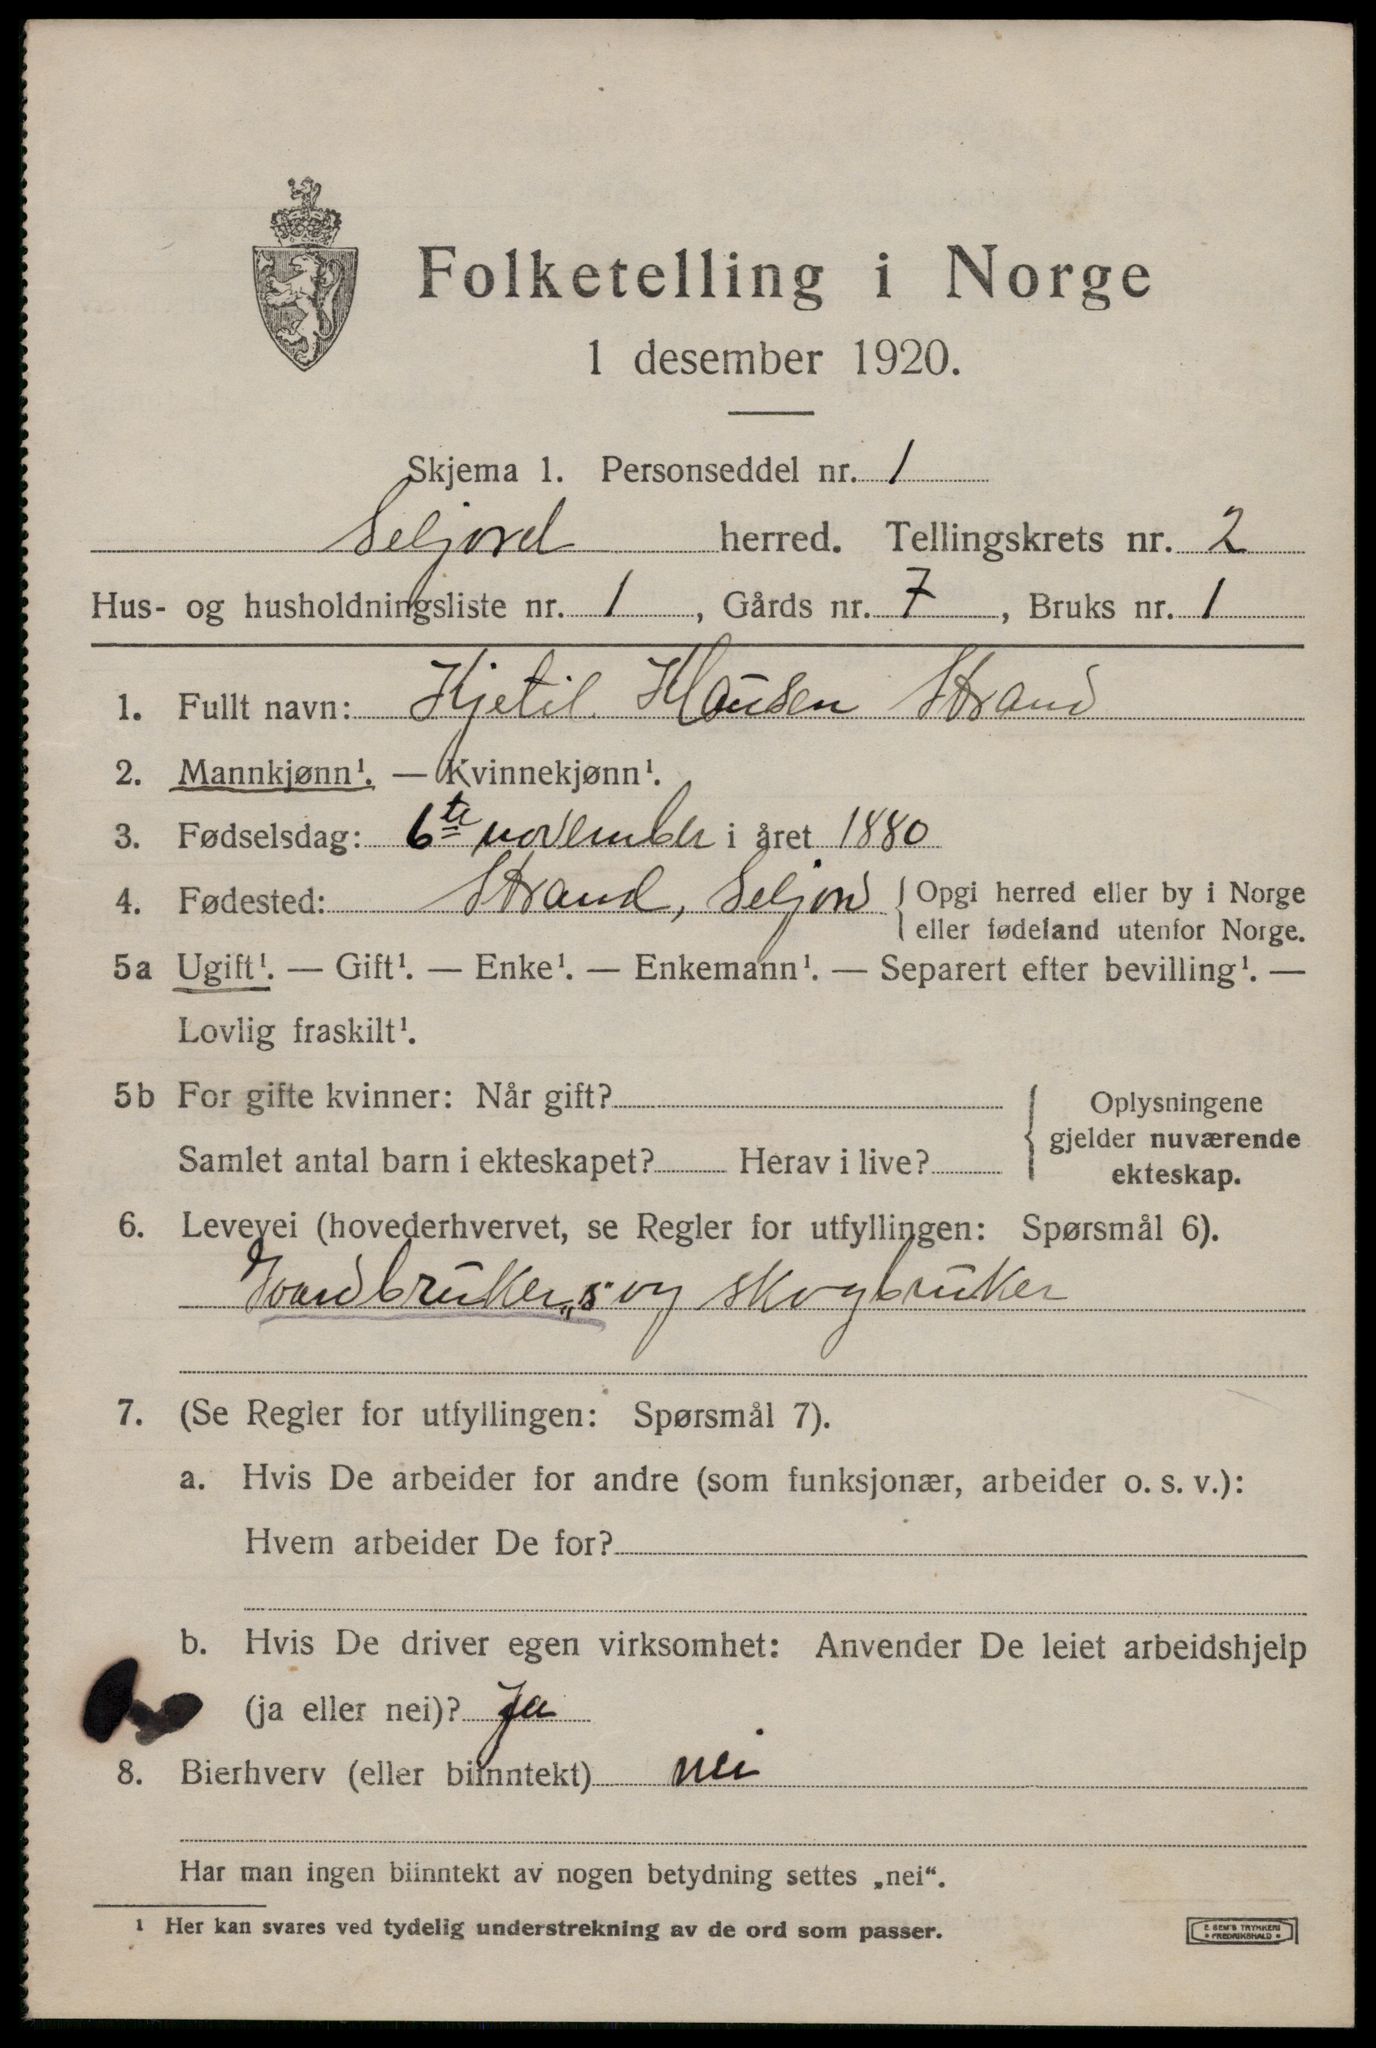 Folketelling i Norge
1 desember 1920.
Skjema 1. Personseddel nr. 1
Seljord herred. Tellingskrets nr. 2
Hus- og husholdningsliste nr. 1, Gårds nr. 7, Bruks nr. 1
1. Fullt navn: Kjetil Klausen Strand
2. Mannkjønn¹. — Kvinnekjønn¹.
3. Fødselsdag: 6te november i året 1880
4. Fødested: Strand, Seljord { Opgi herred eller by i Norge
eller fødeland utenfor Norge.
5a Ugift¹. — Gift¹. — Enke¹. — Enkemann¹. — Separert efter bevilling¹. —
Lovlig fraskilt¹.
5b For gifte kvinner: Når gift?
Samlet antal barn i ekteskapet? Herav i live?
Oplysningene
gjelder nuværende
ekteskap.
6. Levevei (hovederhvervet, se Regler for utfyllingen: Spørsmål 6).
Gaardbruker „s" og skogbruker
7. (Se Regler for utfyllingen: Spørsmål 7).
a. Hvis De arbeider for andre (som funksjonær, arbeider o. s. v.):
Hvem arbeider De for?
b. Hvis De driver egen virksomhet: Anvender De leiet arbeidshjelp
(ja eller nei)? Ja
8. Bierhverv (eller biinntekt) nei
Har man ingen biinntekt av nogen betydning settes „nei“.
¹ Her kan svares ved tydelig understrekning av de ord som passer.
E. SEM'S TRYKKERI
FREDRIKSHALD